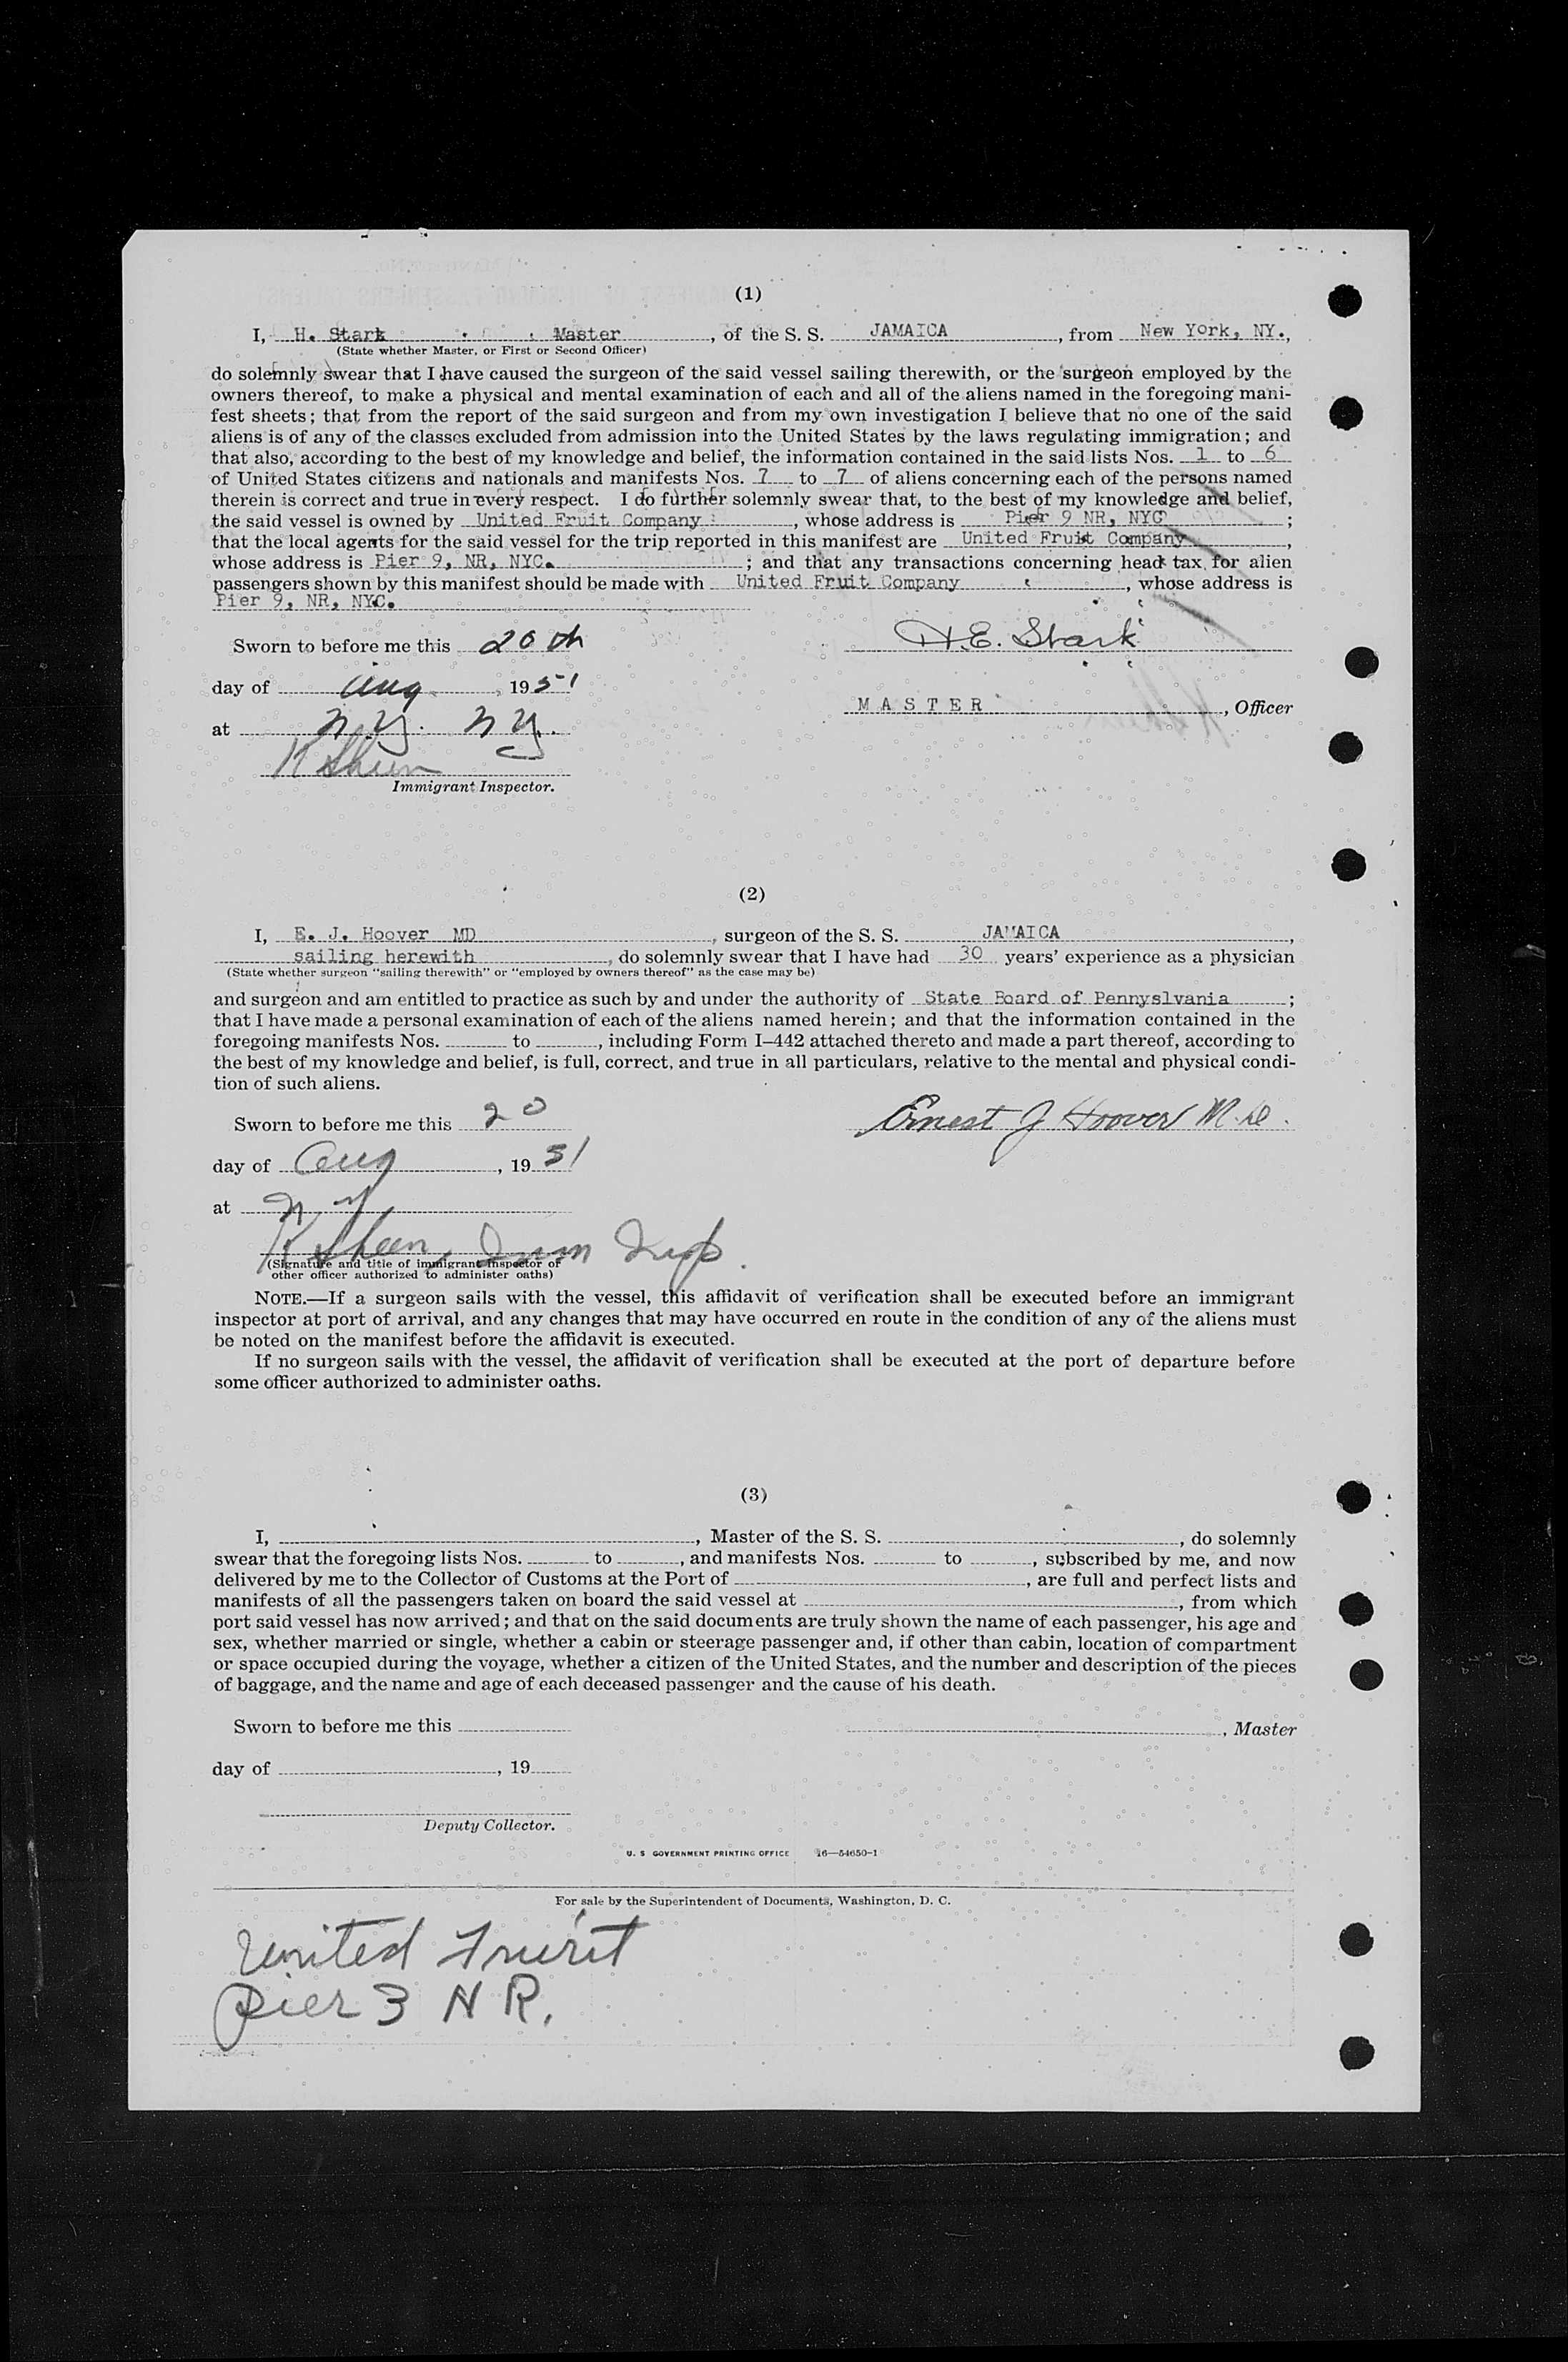 (1)
I, H. Stark Master, of the S. S. JAMAICA, from New York, NY.,
(State whether Master, or First or Second Officer)
do solemnly swear that I have caused the surgeon of the said vessel sailing therewith, or the surgeon employed by the
owners thereof, to make a physical and mental examination of each and all of the aliens named in the foregoing mani-
fest sheets; that from the report of the said surgeon and from my own investigation I believe that no one of the said
aliens is of any of the classes excluded from admission into the United States by the laws regulating immigration; and
that also, according to the best of my knowledge and belief, the information contained in the said lists Nos. 1 to 6
of United States citizens and nationals and manifests Nos. 7 to 7 of aliens concerning each of the persons named
therein is correct and true in every respect. I do further solemnly swear that, to the best of my knowledge and belief,
the said vessel is owned by United Fruit Company, whose address is Pier 9 NR, NYC;
that the local agents for the said vessel for the trip reported in this manifest are United Fruit Company,
whose address is Pier 9, NR, NYC.; and that any transactions concerning head tax for alien
passengers shown by this manifest should be made with United Fruit Company, whose address is
Pier 9, NR, NYC.
Sworn to before me this 20th
H.E. Stark
day of Aug, 1951
MASTER, Officer
at N.Y. NY.
K Sheen
Immigrant Inspector.
(2)
I, E. J. Hoover MD, surgeon of the S. S. JAMAICA,
sailing herewith, do solemnly swear that I have had 30 years' experience as a physician
(State whether surgeon "sailing therewith" or "employed by owners thereof" as the case may be)
and surgeon and am entitled to practice as such by and under the authority of State Board of Pennyslvania;
that I have made a personal examination of each of the aliens named herein; and that the information contained in the
foregoing manifests Nos. to, including Form I–442 attached thereto and made a part thereof, according to
the best of my knowledge and belief, is full, correct, and true in all particulars, relative to the mental and physical condi-
tion of such aliens.
Sworn to before me this 20
Ernest J Hoover M.D.
day of Aug, 1951
at N Y
K Sheen, Imm Insp.
(Signature and title of immigrant inspector or
other officer authorized to administer oaths)
NOTE.—If a surgeon sails with the vessel, this affidavit of verification shall be executed before an immigrant
inspector at port of arrival, and any changes that may have occurred en route in the condition of any of the aliens must
be noted on the manifest before the affidavit is executed.
If no surgeon sails with the vessel, the affidavit of verification shall be executed at the port of departure before
some officer authorized to administer oaths.
(3)
I, , Master of the S. S. , do solemnly
swear that the foregoing lists Nos. to , and manifests Nos. to , subscribed by me, and now
delivered by me to the Collector of Customs at the Port of , are full and perfect lists and
manifests of all the passengers taken on board the said vessel at , from which
port said vessel has now arrived; and that on the said documents are truly shown the name of each passenger, his age and
sex, whether married or single, whether a cabin or steerage passenger and, if other than cabin, location of compartment
or space occupied during the voyage, whether a citizen of the United States, and the number and description of the pieces
of baggage, and the name and age of each deceased passenger and the cause of his death.
Sworn to before me this
, Master
day of , 19
Deputy Collector.
U. S GOVERNMENT PRINTING OFFICE 16—54650-1
For sale by the Superintendent of Documents, Washington, D. C.
United Fruit
Pier 3 N R.